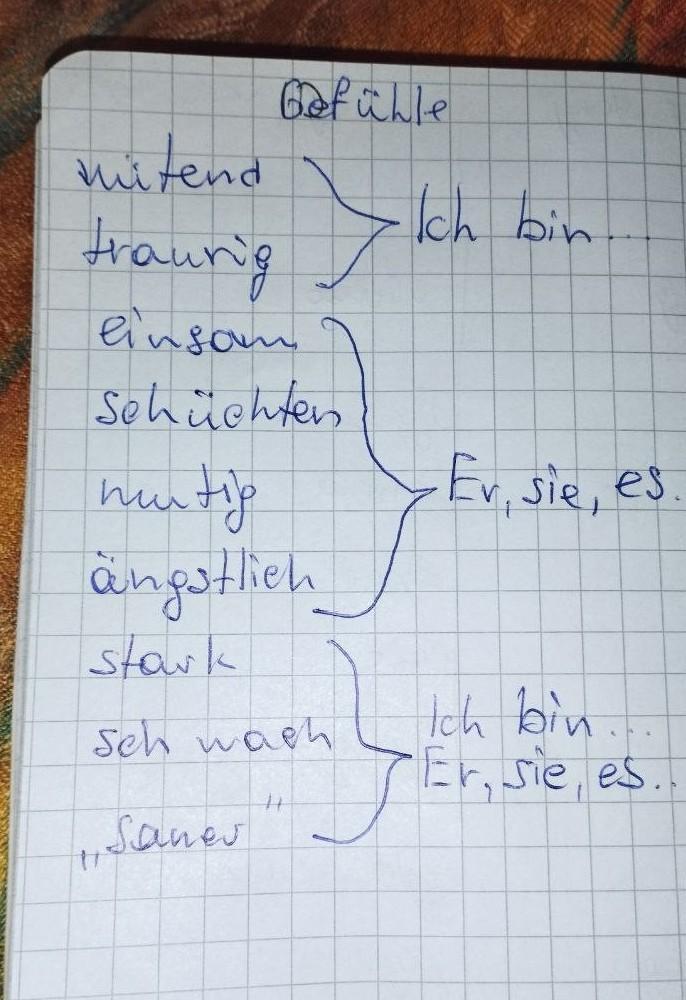 Gefühle
wütend
traurig
Ich bin...
einsam
schüchtern
mutig
ängstlich
Er, sie, es.
stark
schwach
„sauer"
Ich bin...
Er, sie, es..